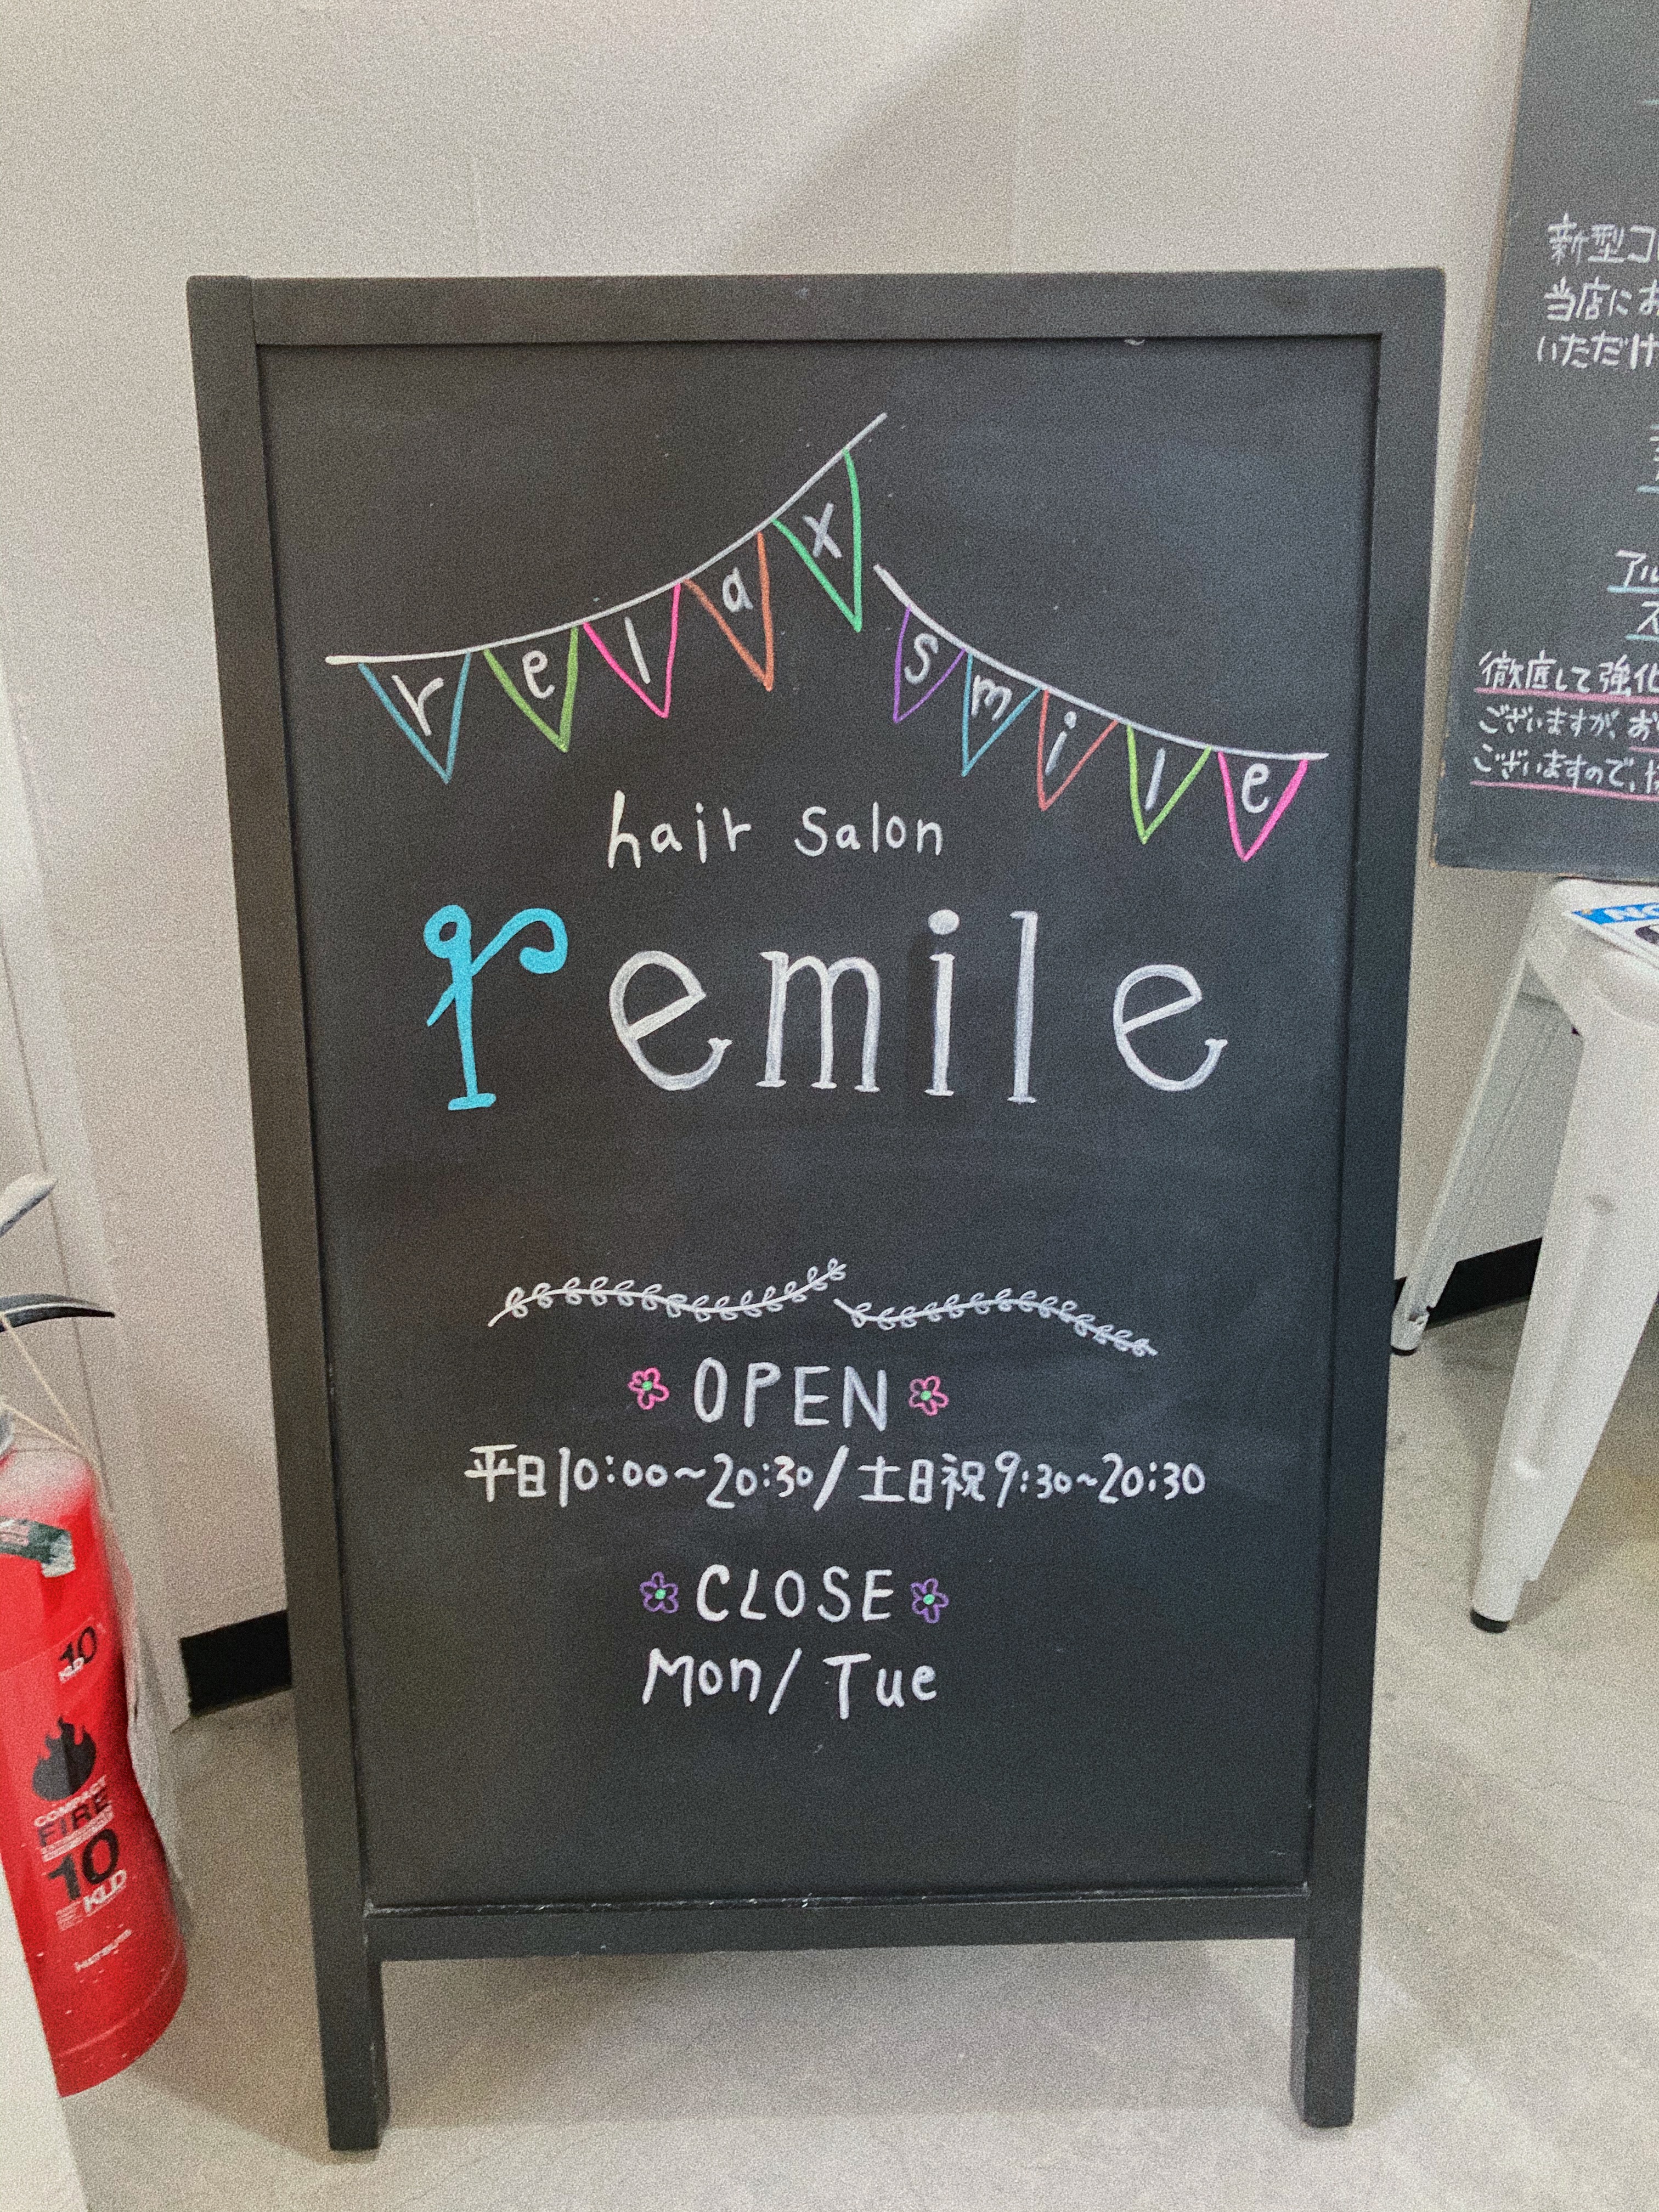 relax smile
hair salon
remile
OPEN
平日10:00~20:30/土日祝9:30~20:30
CLOSE
Mon/Tue
新型コ
当店にお
いただけ
アル
ス
徹底して強化
ございますが、お
ございますので、
10
COMPACT
FIRE
10